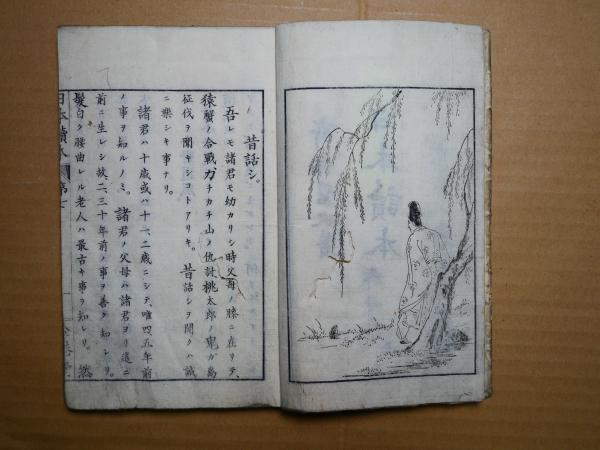 昔話シ。
吾レモ諸君モ幼カリシ時父母ノ膝ニ在リテ、
猿蟹ノ合戰カチカチ山ノ仇討桃太郎ノ鬼ガ島
征伐ヲ聞キシコトアリキ。昔話シヲ聞クハ誠
ニ樂シキ事ナリ。
諸君ハ十歳或ハ十一、二歳ニシテ、唯四五年前
ノ事ヲ知ルノミ。諸君ノ父母ハ諸君ヨリ遠ニ
前ニ生レシ故、二、三十年前ノ事ヲ善ク知レリ。
髮白ク腰曲レル老人ハ最古キ事ヲ知レリ。然
日本讀本 第七